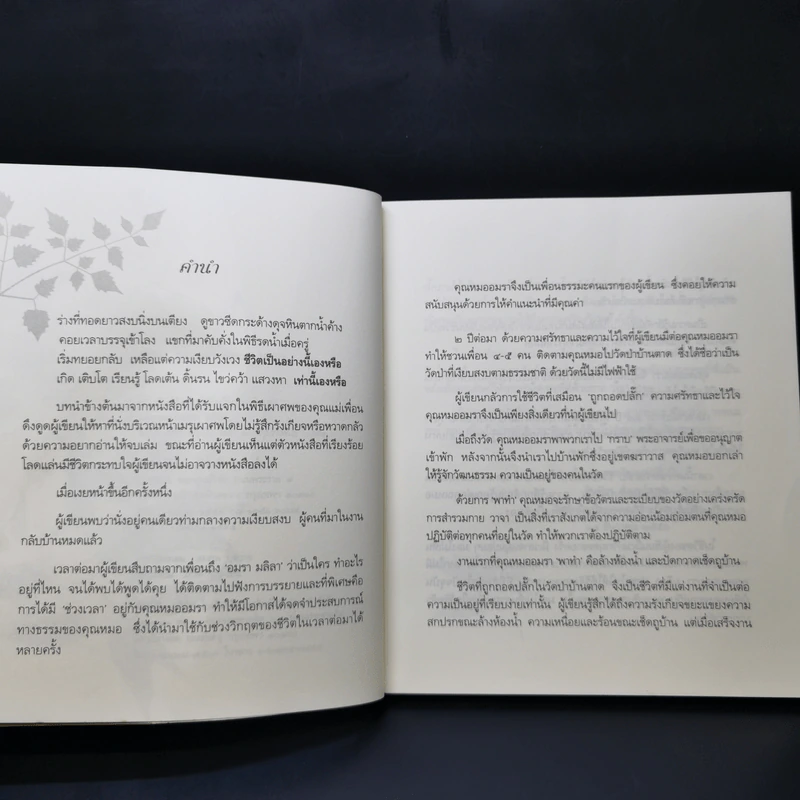 คำนำ
ร่างที่ทอดยาวสงบนิ่งบนเตียง ดูขาวซีดกระด้างดุจหินตากน้ำค้าง
คอยเวลาบรรจุเข้าโลง แขกที่มาคับคั่งในพิธีรดน้ำเมื่อครู่
เริ่มทยอยกลับ เหลือแต่ความเงียบวังเวง ชีวิตเป็นอย่างนี้เองหรือ
เกิด เติบโต เรียนรู้ โลดเต้น ดิ้นรน ไขว่คว้า แสวงหา เท่านี้เองหรือ
บทนำข้างต้นมาจากหนังสือที่ได้รับแจกในพิธีเผาศพของคุณแม่เพื่อน
ดึงดูดผู้เขียนให้หาที่นั่งบริเวณหน้าเมรุเผาศพโดยไม่รู้สึกรังเกียจหรือหวาดกลัว
ด้วยความอยากอ่านให้จบเล่ม ขณะที่อ่านผู้เขียนเห็นแต่ตัวหนังสือที่เรียงร้อย
โลดแล่นมีชีวิตกระทบใจผู้เขียนจนไม่อาจวางหนังสือลงได้
เมื่อเงยหน้าขึ้นอีกครั้งหนึ่ง
ผู้เขียนพบว่านั่งอยู่คนเดียวท่ามกลางความเงียบสงบ ผู้คนที่มาในงาน
กลับบ้านหมดแล้ว
เวลาต่อมาผู้เขียนสืบถามจากเพื่อนถึง 'อมรา มลิลา' ว่าเป็นใคร ทำอะไร
อยู่ที่ไหน จนได้พบได้พูดได้คุย ได้ติดตามไปฟังการบรรยายและที่พิเศษคือ
การได้มี 'ช่วงเวลา' อยู่กับคุณหมออมรา ทำให้มีโอกาสได้จดจำประสบการณ์
ทางธรรมของคุณหมอ ซึ่งได้นำมาใช้กับช่วงวิกฤตของชีวิตในเวลาต่อมาได้
หลายครั้ง
คุณหมออมราจึงเป็นเพื่อนธรรมะคนแรกของผู้เขียน ซึ่งคอยให้ความ
สนับสนุนด้วยการให้คำแนะนำที่มีคุณค่า
๒ ปีต่อมา ด้วยความศรัทธาและความไว้ใจที่ผู้เขียนมีต่อคุณหมออมรา
ทำให้ชวนเพื่อน ๔-๕ คน ติดตามคุณหมอไปวัดป่าบ้านตาด ซึ่งได้ชื่อว่าเป็น
วัดป่าที่เงียบสงบตามธรรมชาติ ด้วยวัดนี้ไม่มีไฟฟ้าใช้
ผู้เขียนกลัวการใช้ชีวิตที่เสมือน 'ถูกถอดปลั๊ก' ความศรัทธาและไว้ใจ
คุณหมออมราจึงเป็นเพียงสิ่งเดียวที่นำผู้เขียนไป
เมื่อถึงวัด คุณหมออมราพาพวกเราไป 'กราบ' พระอาจารย์เพื่อขออนุญาต
เข้าพัก หลังจากนั้นจึงนำเราไปบ้านพักซึ่งอยู่เขตฆราวาส คุณหมอบอกเล่า
ให้รู้จักวัฒนธรรม ความเป็นอยู่ของคนในวัด
ด้วยการ 'พาทำ' คุณหมอจะรักษาข้อวัตรและระเบียบของวัดอย่างเคร่งครัด
การสำรวมกาย วาจา เป็นสิ่งที่เราสังเกตได้จากความอ่อนน้อมถ่อมตนที่คุณหมอ
ปฏิบัติต่อทุกคนที่อยู่ในวัด ทำให้พวกเราต้องปฏิบัติตาม
งานแรกที่คุณหมอ 'พาทำ' คือล้างห้องน้ำ และปัดกวาดเช็ดถูบ้าน
ชีวิตที่ถูกถอดปลั๊กในวัดป่าบ้านตาด จึงเป็นชีวิตที่มีแต่งานที่จำเป็นต่อ
ความเป็นอยู่ที่เรียบง่ายเท่านั้น ผู้เขียนรู้สึกได้ถึงความรังเกียจขยะแขยงความ
สกปรกขณะล้างห้องน้ำ ความเหนื่อยและร้อนขณะเช็ดถูบ้าน แต่เมื่อเสร็จงาน